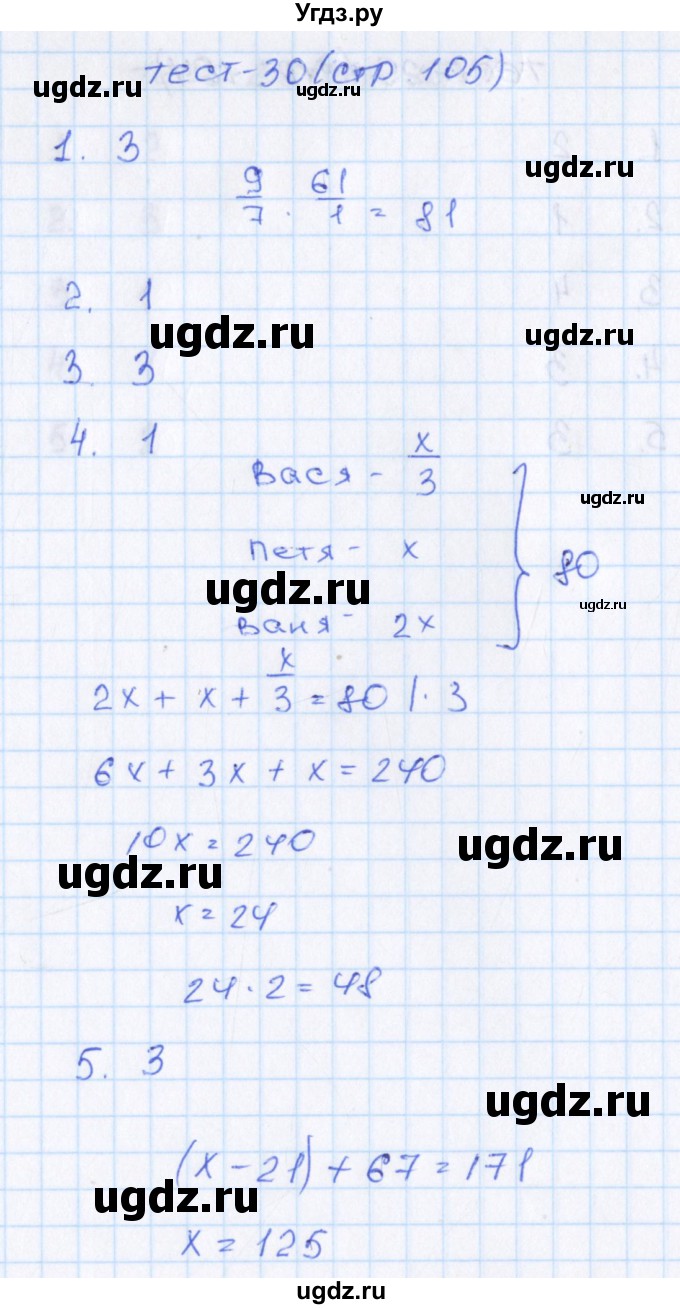 Угдз.ру
тест-30 (стр 105)
ugdz.ru
ugdz.ru
1. 3
ugdz.ru
9/7 · 61/1 = 81
2. 1
ugdz.ru
ugdz.ru
3. 3
4. 1
Вася - x/3
ugdz.ru
Петя - x
80
ugdz.ru
ugdz.ru
Ваня - 2x
2x + x + x/3 = 80 |· 3
6x + 3x + x = 240
10x = 240
ugdz.ru
ugdz.ru
x = 24
24 · 2 = 48
5. 3
ugdz.ru
(x - 21) + 67 = 171
ugdz.ru
x = 125
ugdz.ru